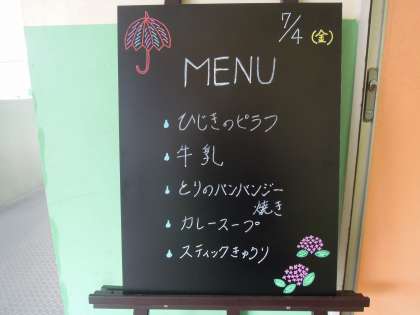 7/4(金)
MENU
ひじきのピラフ
牛乳
とりのバンバンジー
焼き
カレースープ
スティックきゅうり